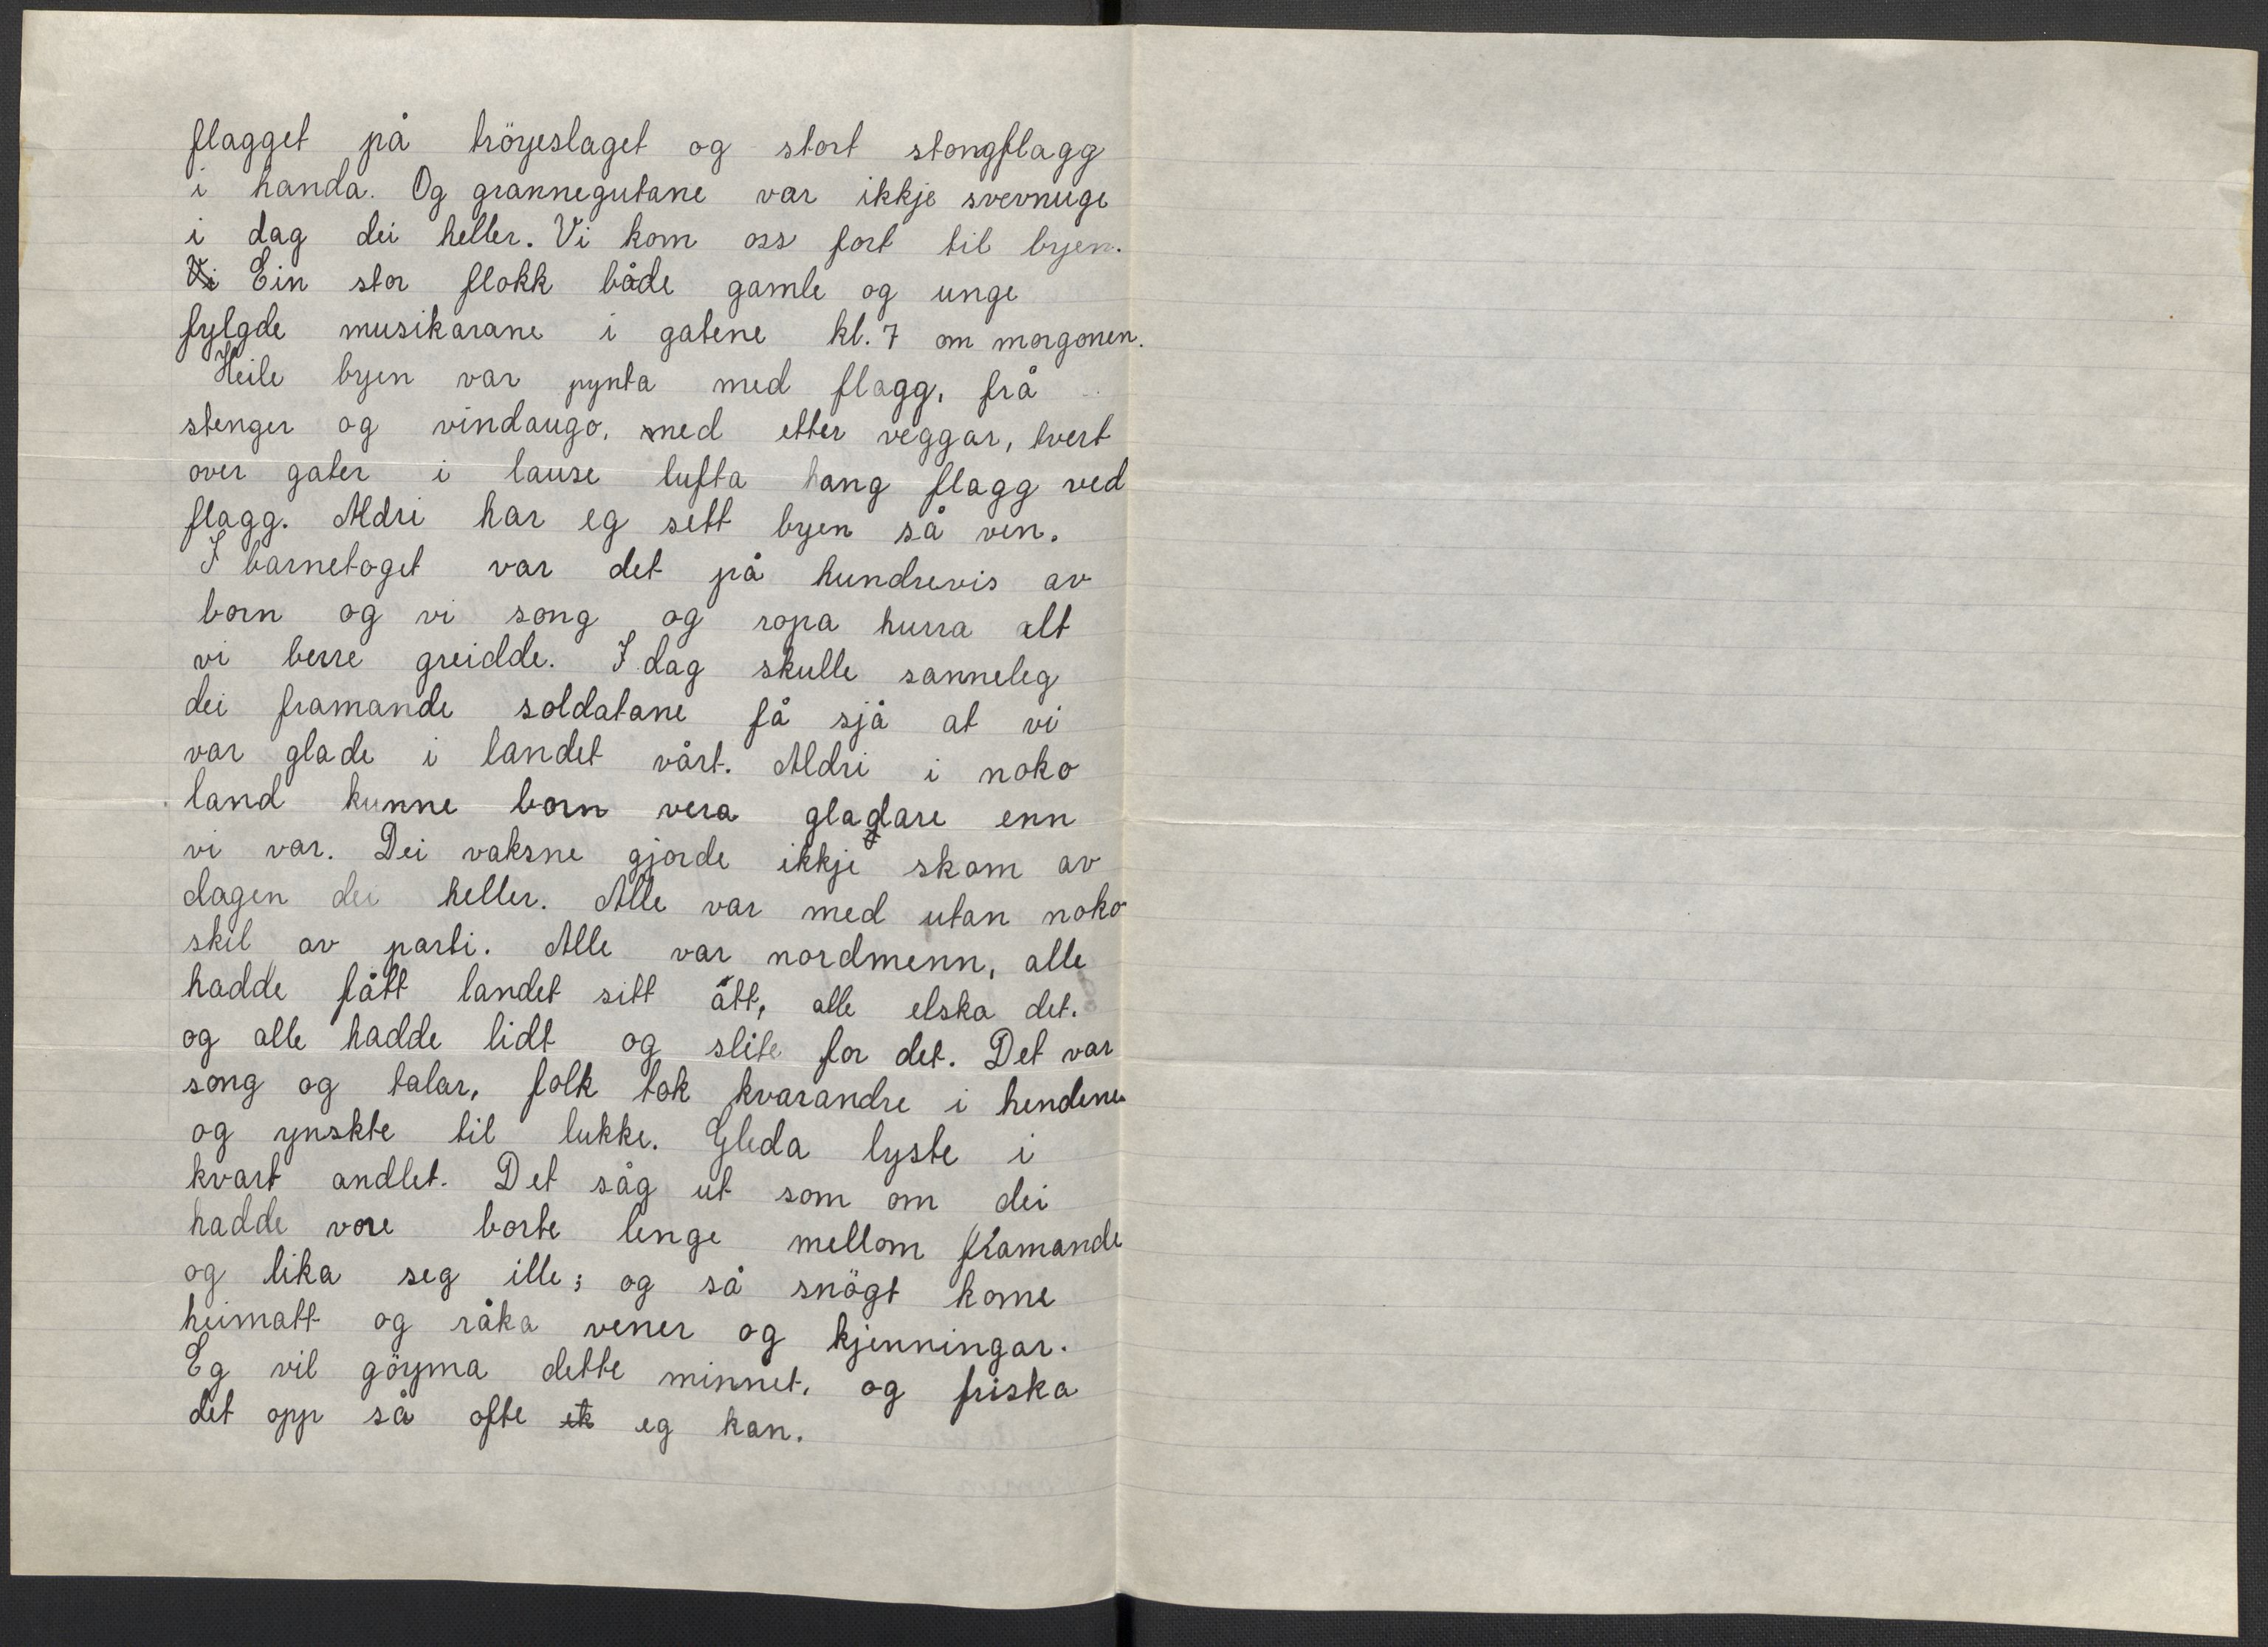 flagget på tröyeslaget og stort stongflagg
i handa. Og grannegutane var ikkje svevnuge
i dag dei heller. Vi kom oss fort til byen.
Vi Ein stor flokk både gamle og unge
fylgde musikarane i gatene kl. 7 om morgonen.
Heile byen var pynta med flagg, frå
stenger og vindaugo, ned etter veggar, tvert
over gater i lause lufta hang flagg ved
flagg. Aldri har eg sett byen så ven.
I barnetoget var det på hundrevis av
born og vi song og ropa hurra alt
vi berre greidde. I dag skulle sanneleg
dei framande soldatane få sjå at vi
var glade i landet vårt. Aldri i noko
land kunne born vera gladare enn
vi var. Dei vaksne gjorde ikkje skam av
dagen dei heller. Alle var med utan noko
skil av parti. Alle var nordmenn, alle
hadde fått landet sitt att, alle elska det.
og alle hadde lidt og slite for det. Det var
song og talar, folk tok kvarandre i hendene
og ynskte til lukke. Gleda lyste i
kvart andlet. Det såg ut som om dei
hadde vore borte lenge mellom framande
og lika seg ille; og så snögt kome
heimatt og råka vener og kjenningar.
Eg vil göyma dette minnet, og friska
det opp så ofte ek eg kan.